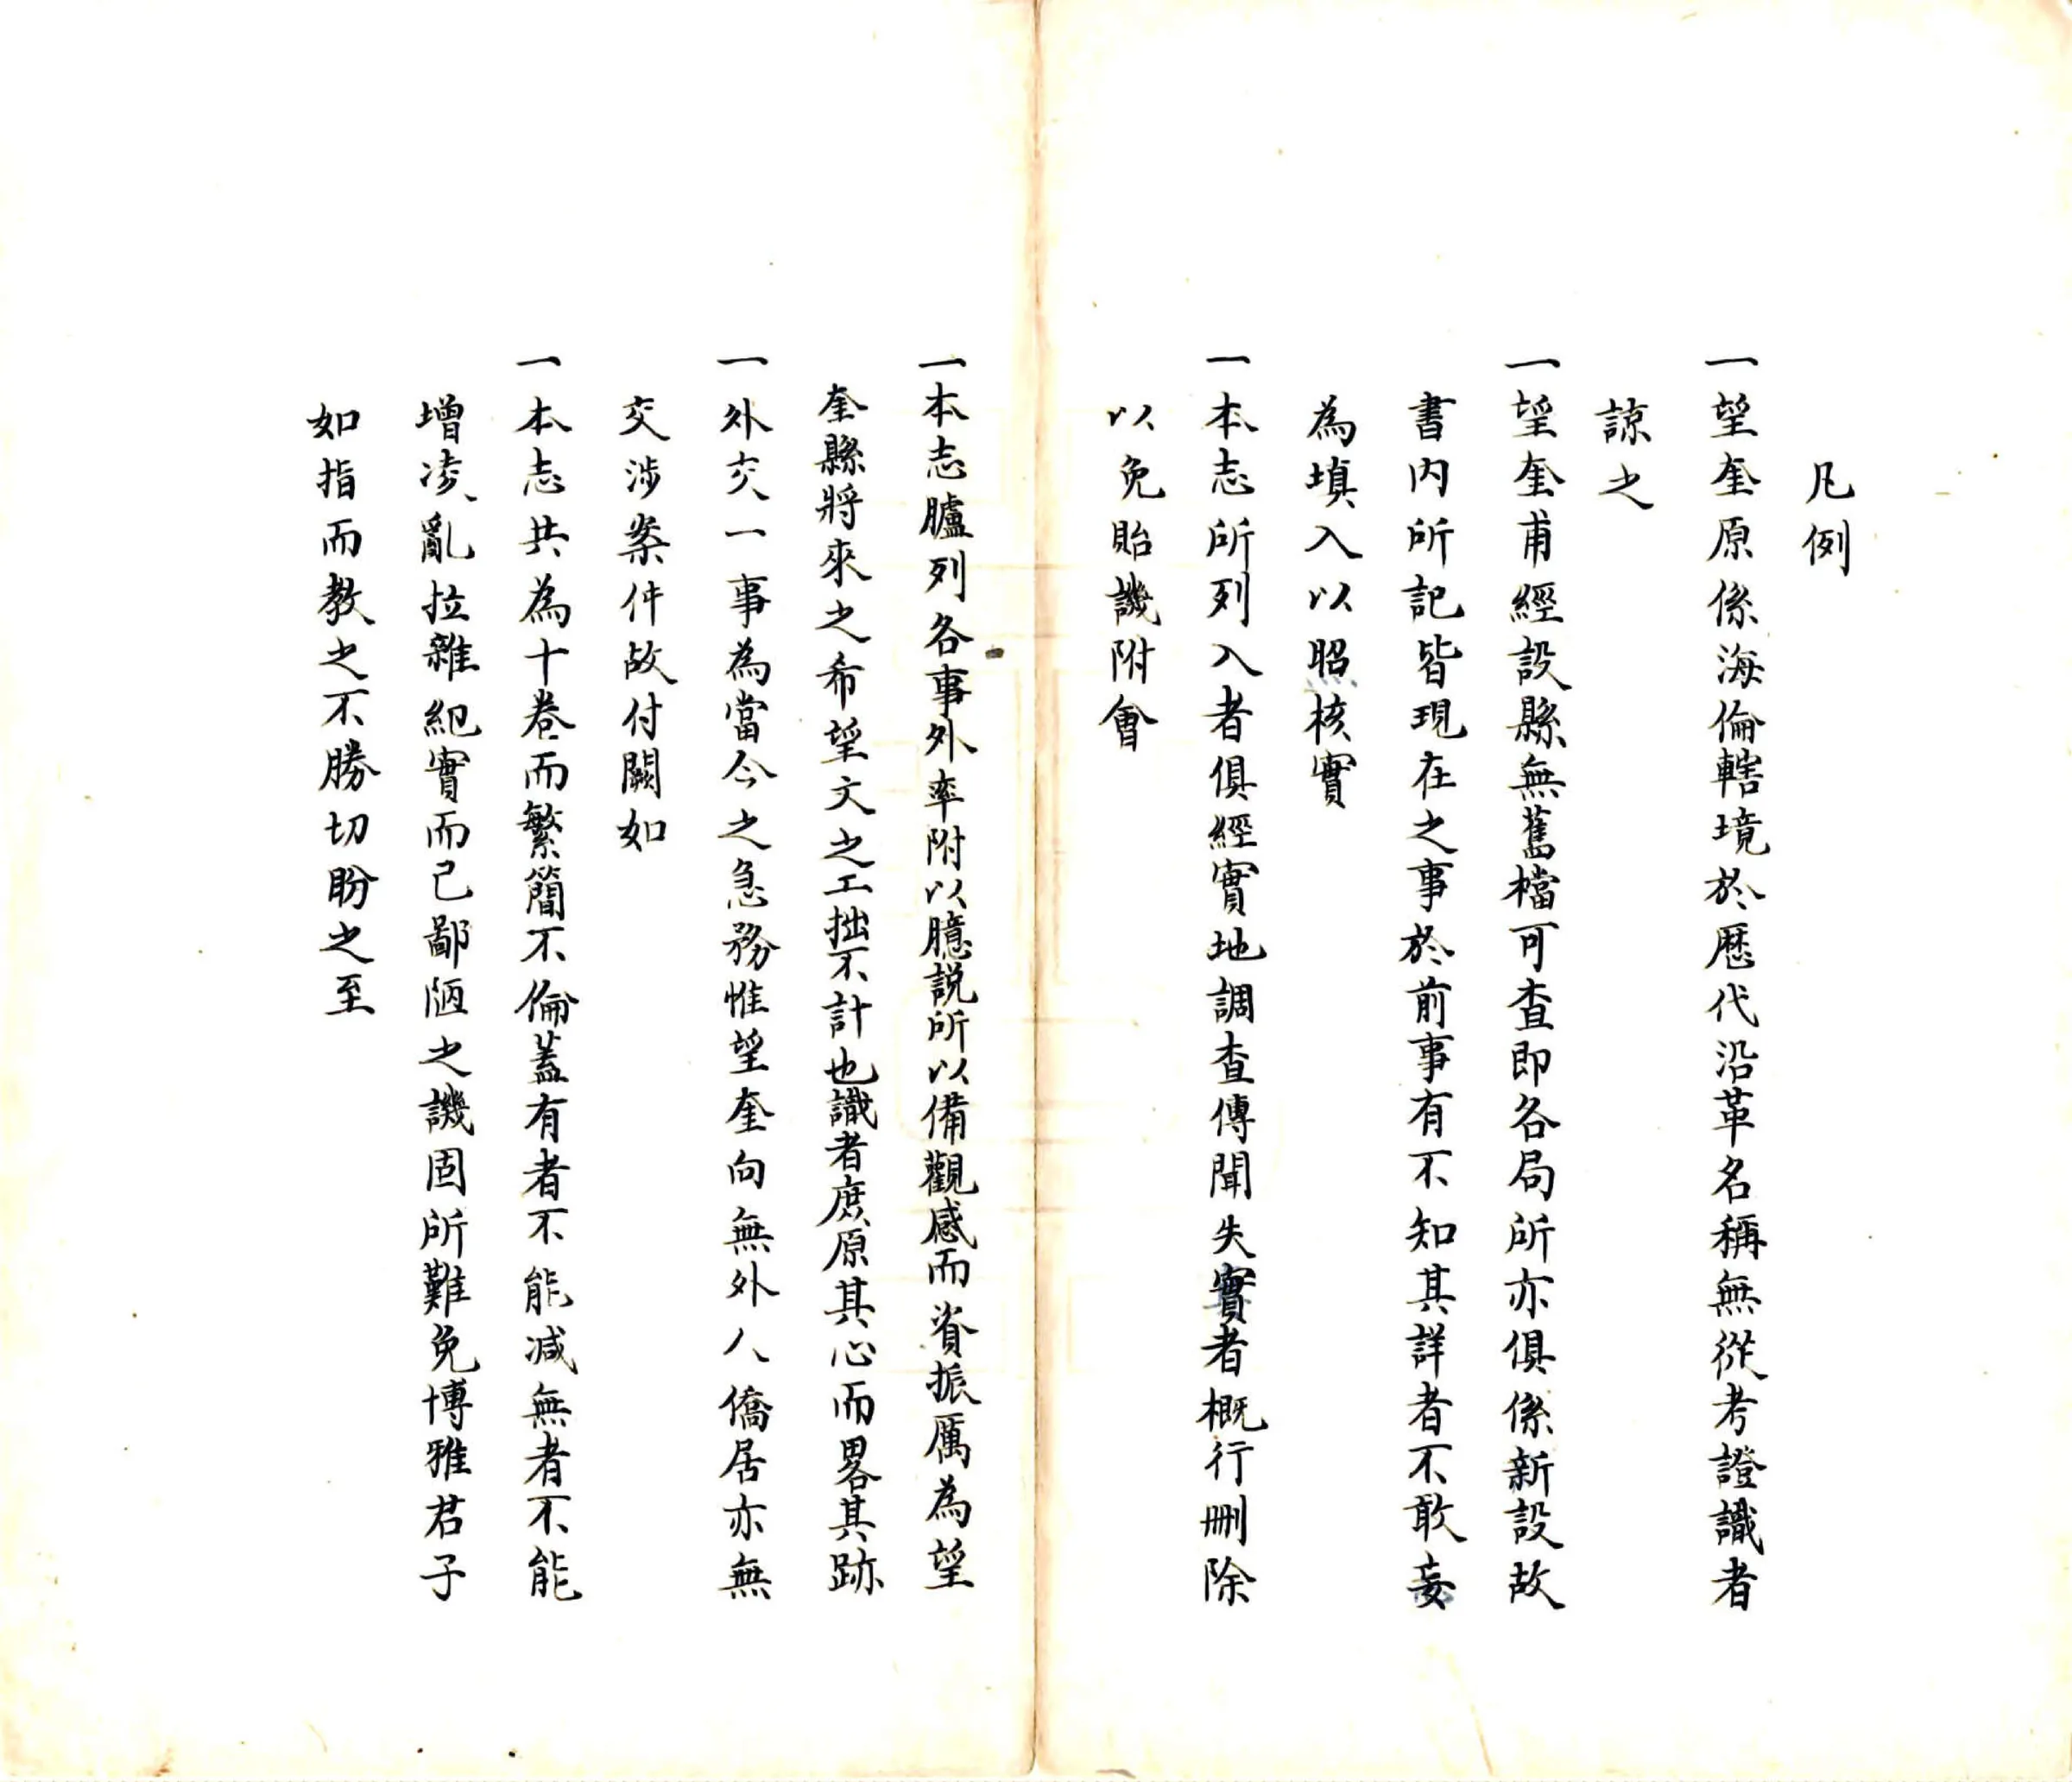 凡例
一望奎原係海倫轄境於歷代沿革名稱無從考證識者
諒之
一望奎甫經設縣無舊檔可查即各局所亦俱係新設故
書内所記皆現在之事於前事有不知其詳者不敢妄
為填入以昭核實
一本志所列入者俱經實地調查傳聞失實者概行刪除
以免貽譏附會
一本志臚列各事外率附以臆説所以備觀感而資振厲為望
奎縣將來之希望文之工拙不計也識者庶原其心而畧其跡
一外交一事為當今之急務惟望奎向無外人僑居亦無
交涉案件故付闕如
一本志共為十卷而繁簡不倫蓋有者不能减無者不能
增凌亂拉雜紀實而已鄙陋之譏固所難免博雅君子
如指而教之不勝切盼之至